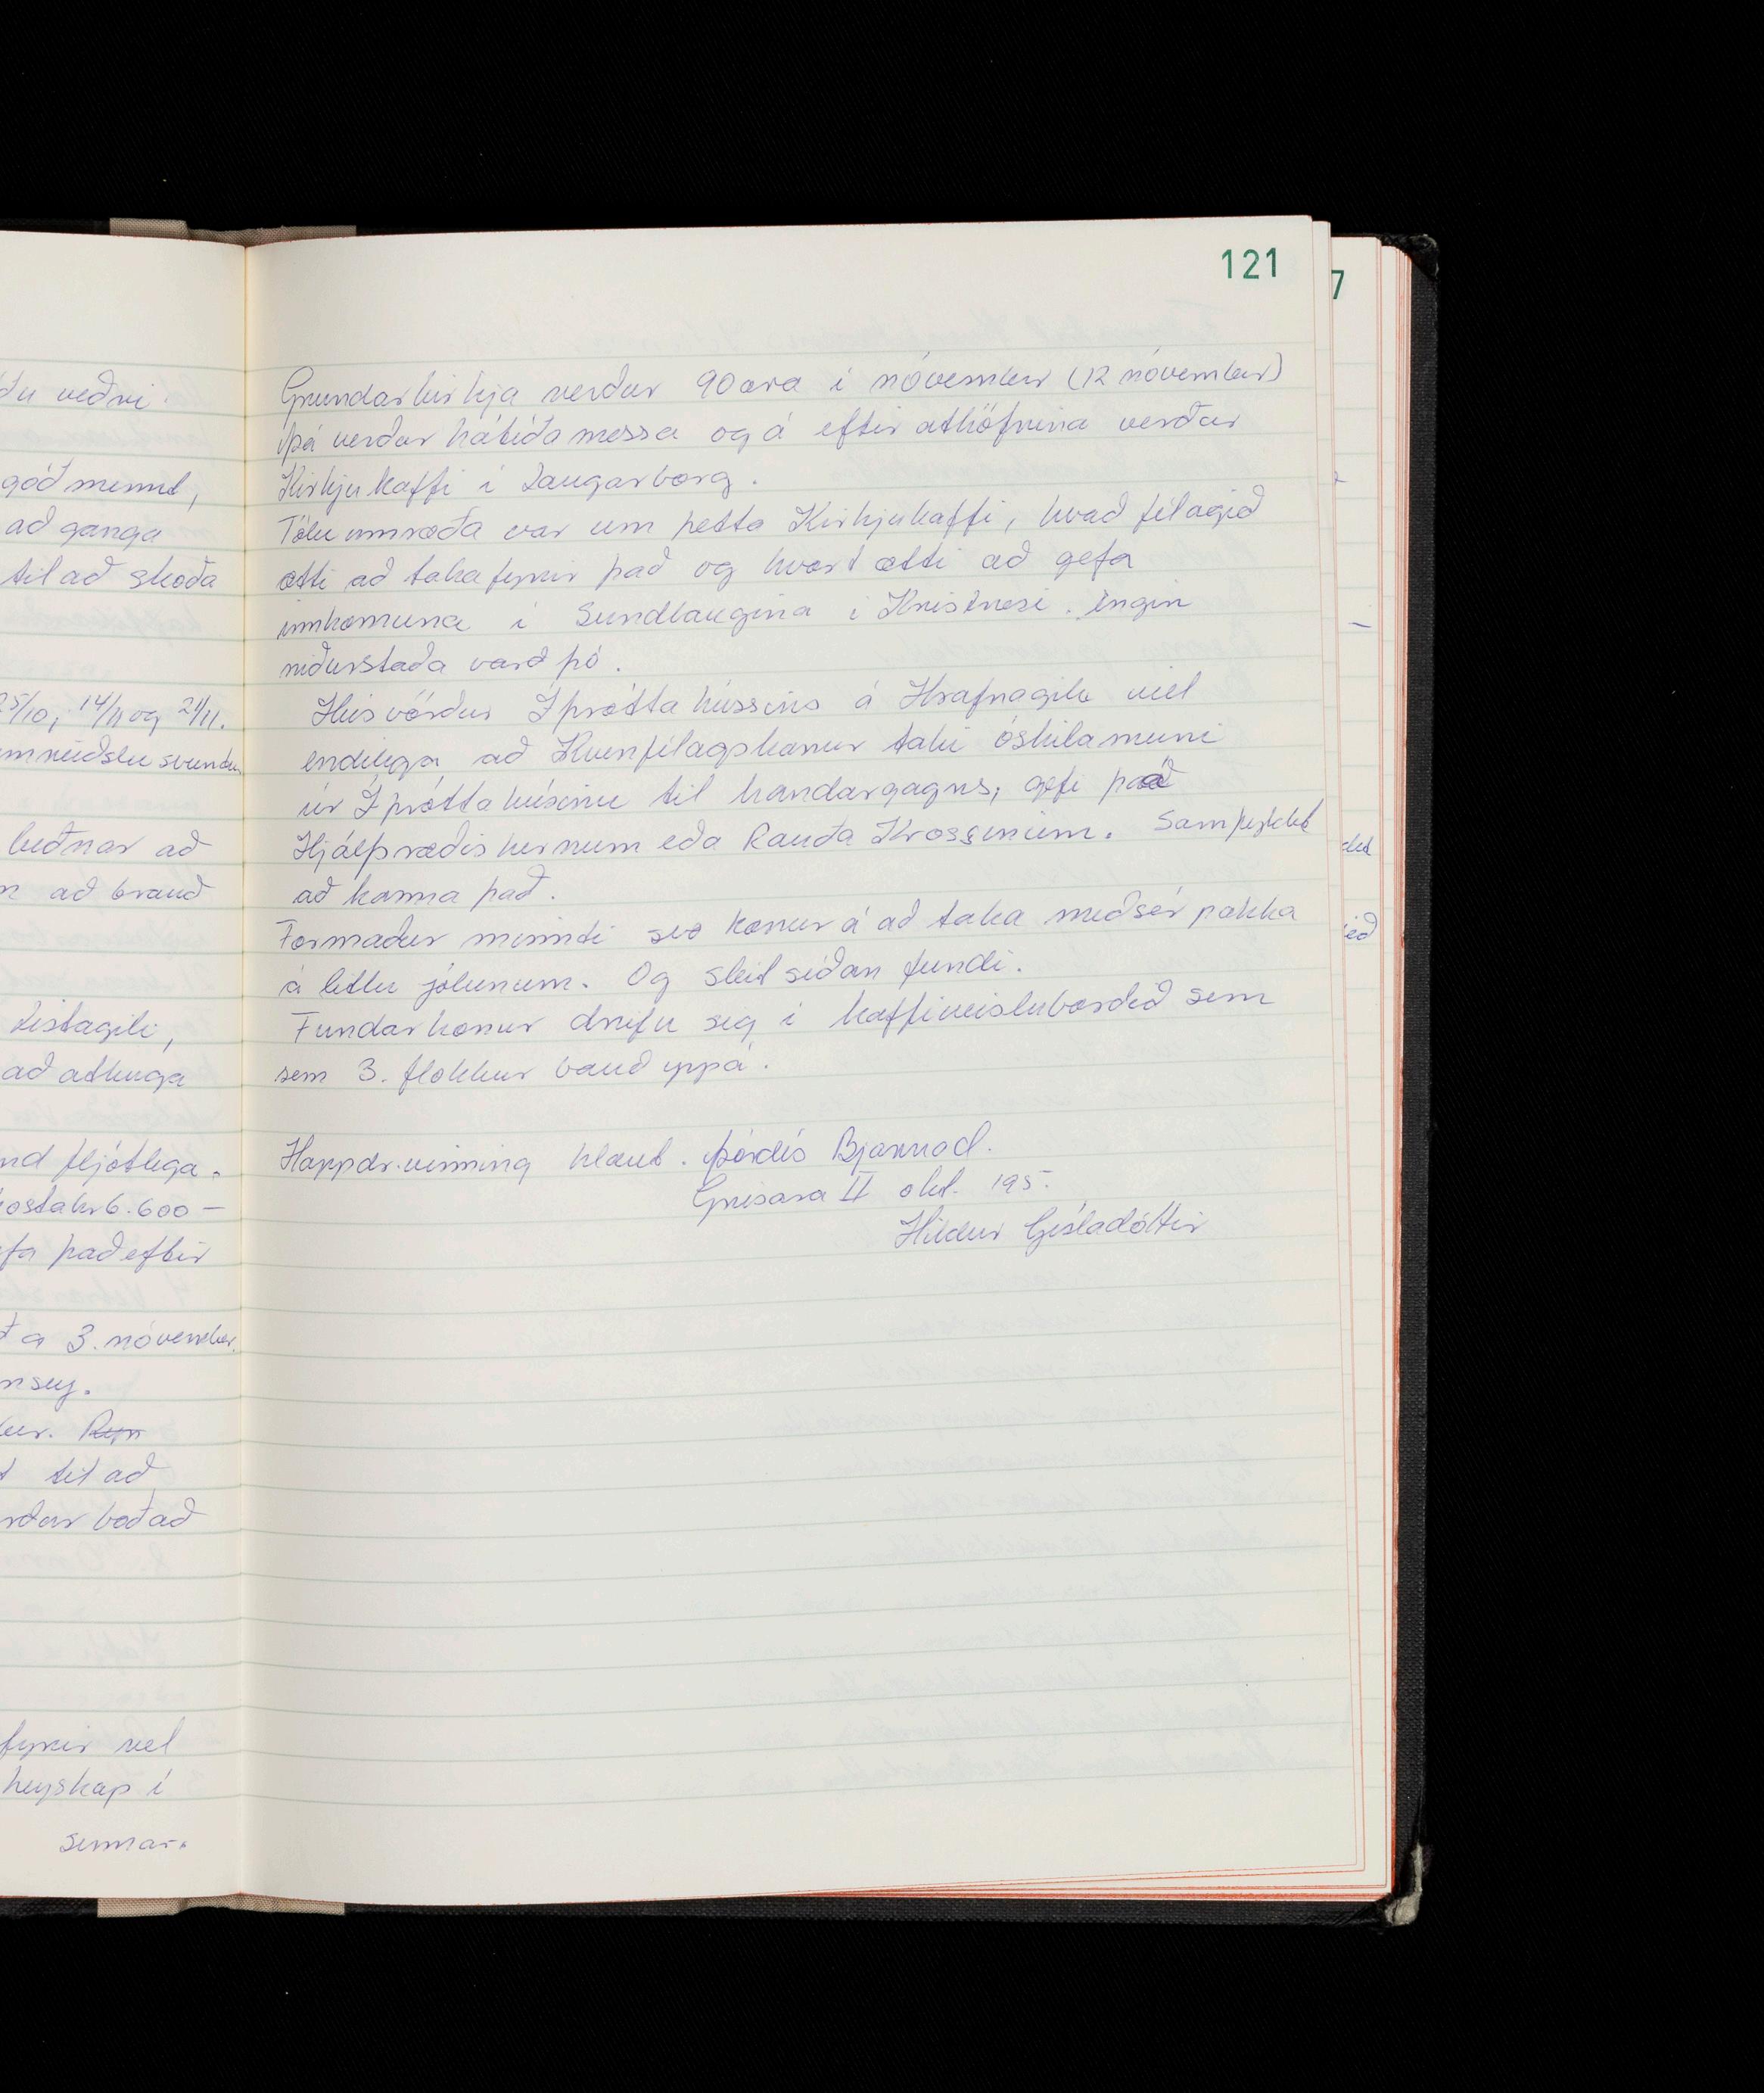 ðu veðri
góðmennt,
að ganga
til að skoða
25/10, 14/11 og 21/11.
beðnar að
að brauð
Listagili,
að athuga
fljótlega.
kosta kr 6.600 -
það eftir
a 3. nóvember.
til að
boðað
fyrir vel
heyskap í
sumar.
121
Grundarkirkja verður 90 ára í nóvember (12 nóvember)
þá verður hátíðamessa og á eftir athöfnina verður
Kirkjukaffi í Laugarborg.
Tölu umræða var um þetta Kirkjukaffi, hvað félagið
ætti að taka fyrir það og hvort ætti að gefa
innkomuna í Sundlaugina í Kristnesi. Engin
niðurstaða varð þó.
Húsvörður Íþróttahússins á Hrafnagili vill
endilega að Kvenfélagskonur taki óskilamuni
úr Íþróttahúsinu til handargagns, gefi það
Hjálpræðishernum eða Rauða Krossinum. Samþykkt
að kanna það.
Formaður minnti svo konur á að taka með sér pakka
á litlu jólunum. Og sleit síðan fundi.
Fundarkonur drifu sig í kaffiveisluborðið sem
sem 3. flokkur bauð uppá.
Happdr.vinning hlaut. Þórdís Bjarnad.
Grísará II okt. '95.
Hildur Gísladóttir